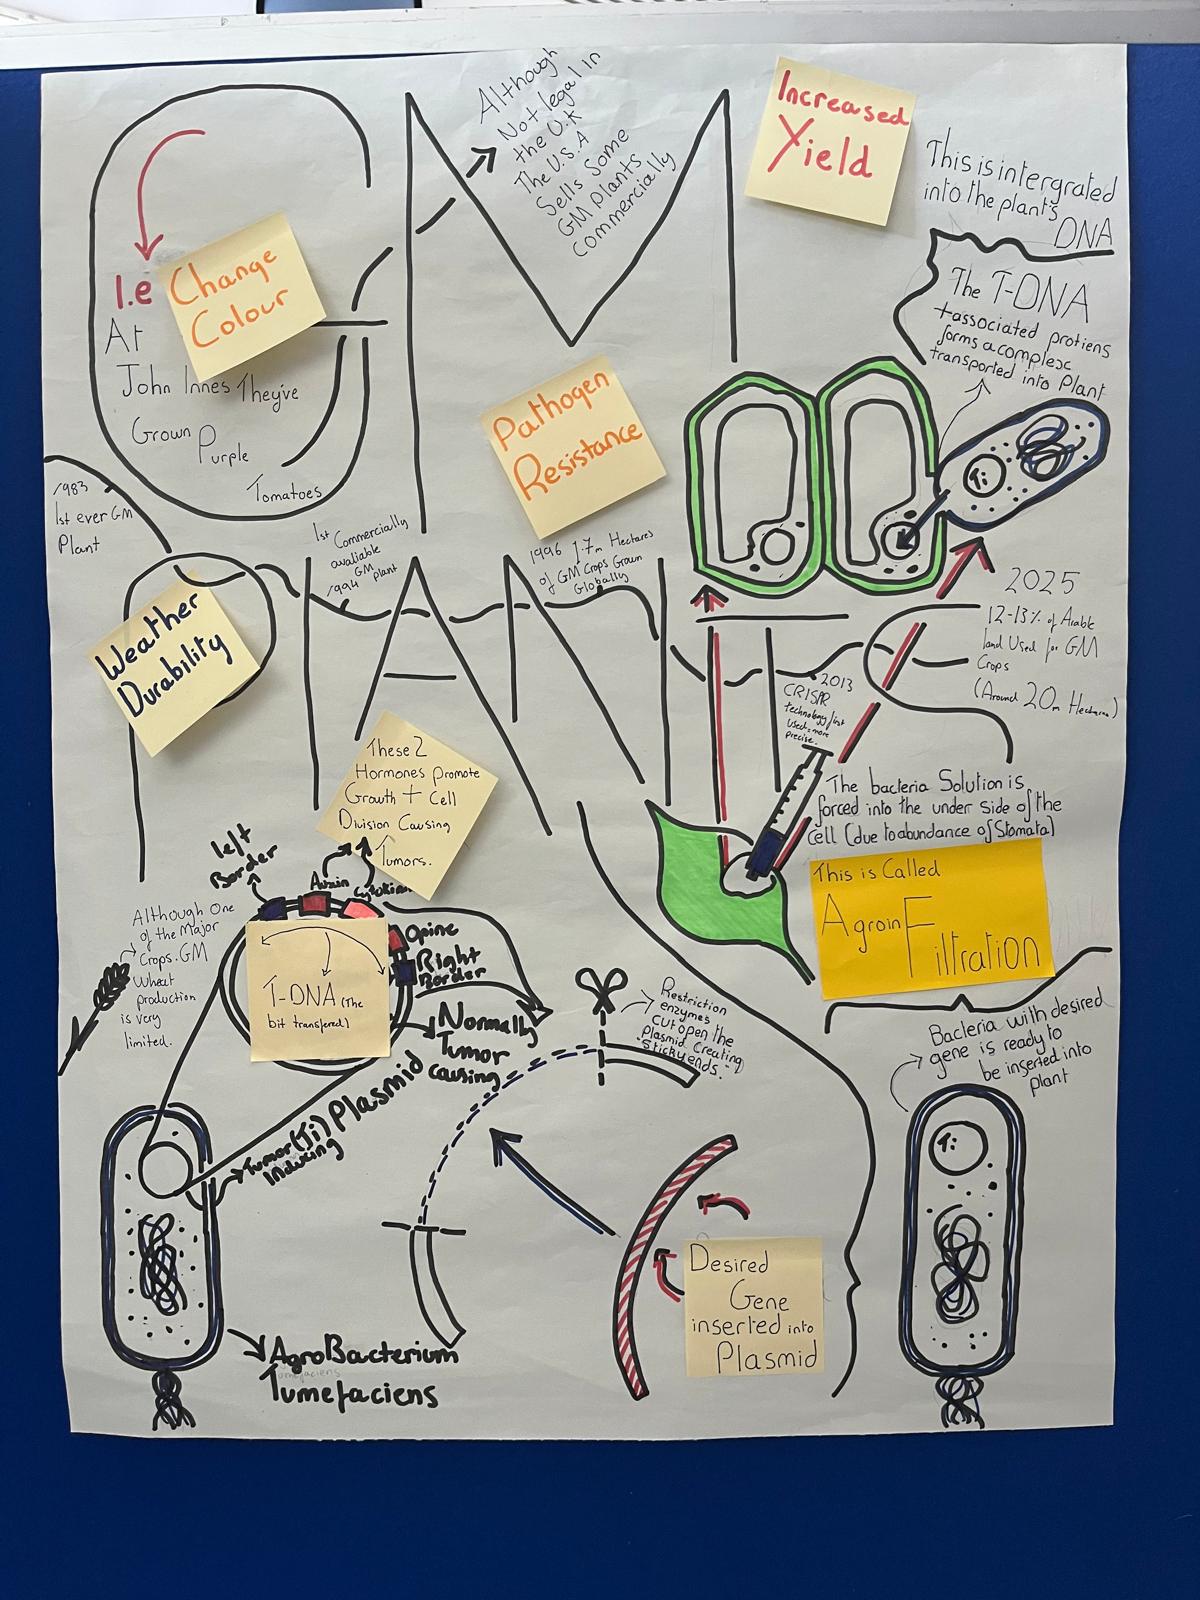 GM
PLANTS
Although
Not legal in
the U.K
The U.S.A
Sells Some
GM Plants
Commercially
Increased
Yield
This is intergrated
into the plant's
DNA
The T-DNA
+associated protiens
forms a complex
transported into Plant
I.e
Change
Colour
At
John Innes They've
Grown Purple
Tomatoes
Pathogen
Resistance
Ti
1983
1st ever GM
Plant
1st Commercially
avaliable
GM plant
1994
1996 1.7m Hectares
of GM Crops Grown
Globally
2013
CRISPR
technology first
used=more
precise.
2025
12-13% of Arable
land Used for GM
Crops
(Around 20m Hectares)
Weather
Durability
These 2
Hormones Promote
Growth + Cell
Division Causing
Tumors.
The bacteria Solution is
forced into the under side of the
cell (due to abundance of Stomata)
This is Called
AgroinFiltration
left
Border
Auxin
Cytokinin
Opine
Right
Border
T-DNA (The
bit transfered)
Although One
of the Major
Crops. GM
Wheat
production
is very
limited.
Normally
Tumor
causing
Tumor (Ti) Plasmid
Inducing
Restriction
enzymes
cut open the
plasmid creating
"Sticky ends."
Bacteria with desired
gene is ready to
be inserted into
plant
Ti
Desired
Gene
inserted into
Plasmid
AgroBacterium
Tumefaciens